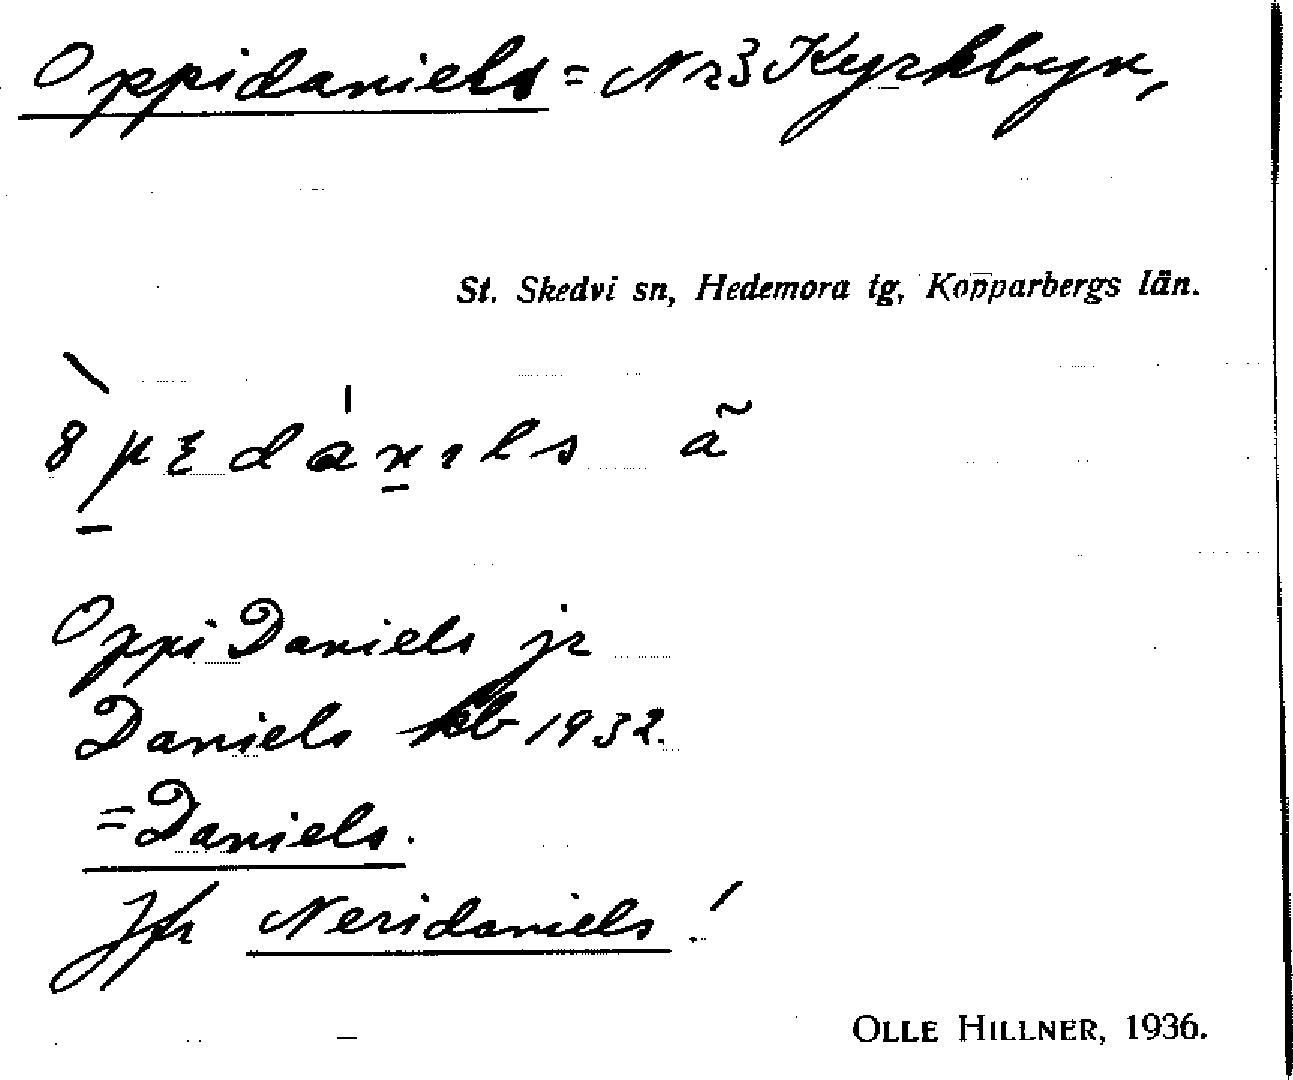 Oppidaniels = Nr 3 Kyrkbyn,
St. Skedvi sn, Hedemora tg, Kopparbergs län.
Oppi Daniels jr
Daniels kb 1932.
= Daniels.
Jfr Neridaniels!
OLLE HILLNER, 1936.